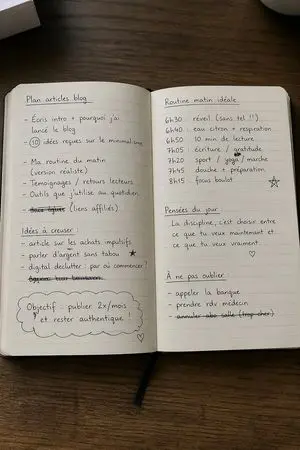 Plan articles blog
- Écris intro + pourquoi j'ai
lancé le blog
- 10 idées reçues sur le minimalisme
- Ma routine du matin
(version réaliste)
- Témoignages / retours lecteurs
- Outils que j'utilise au quotidien
- (liens affiliés)
Idées à creuser
- article sur les achats impulsifs
- parler d'argent sans tabou ★
- digital declutter : par où commencer ?
Objectif : publier 2x/mois
et rester authentique !
♡
Routine matin idéale
6h30 réveil (sans tel !!)
6h40 eau citron + respiration
6h50 10 min de lecture
7h05 écriture / gratitude
7h20 sport / yoga / marche
7h45 douche + préparation
8h15 focus boulot ☆
Pensées du jour
La discipline, c'est choisir entre
ce que tu veux maintenant et
ce que tu veux vraiment.
♡
À ne pas oublier
- appeler la banque
- prendre rdv médecin
- annuler abo salle (trop cher)
♡